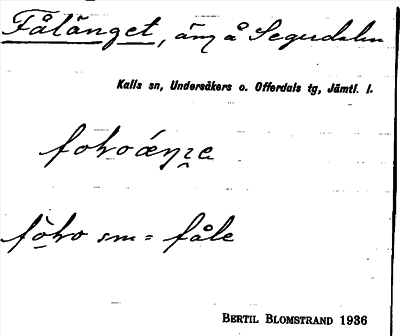 Fålänget, äng å Segerdalen
Kalls sn, Undersåkers o. Offerdals tg, Jämtl. l.
fohoáŋ̫ɛ
fòho sm = fåle
BERTIL BLOMSTRAND 1936